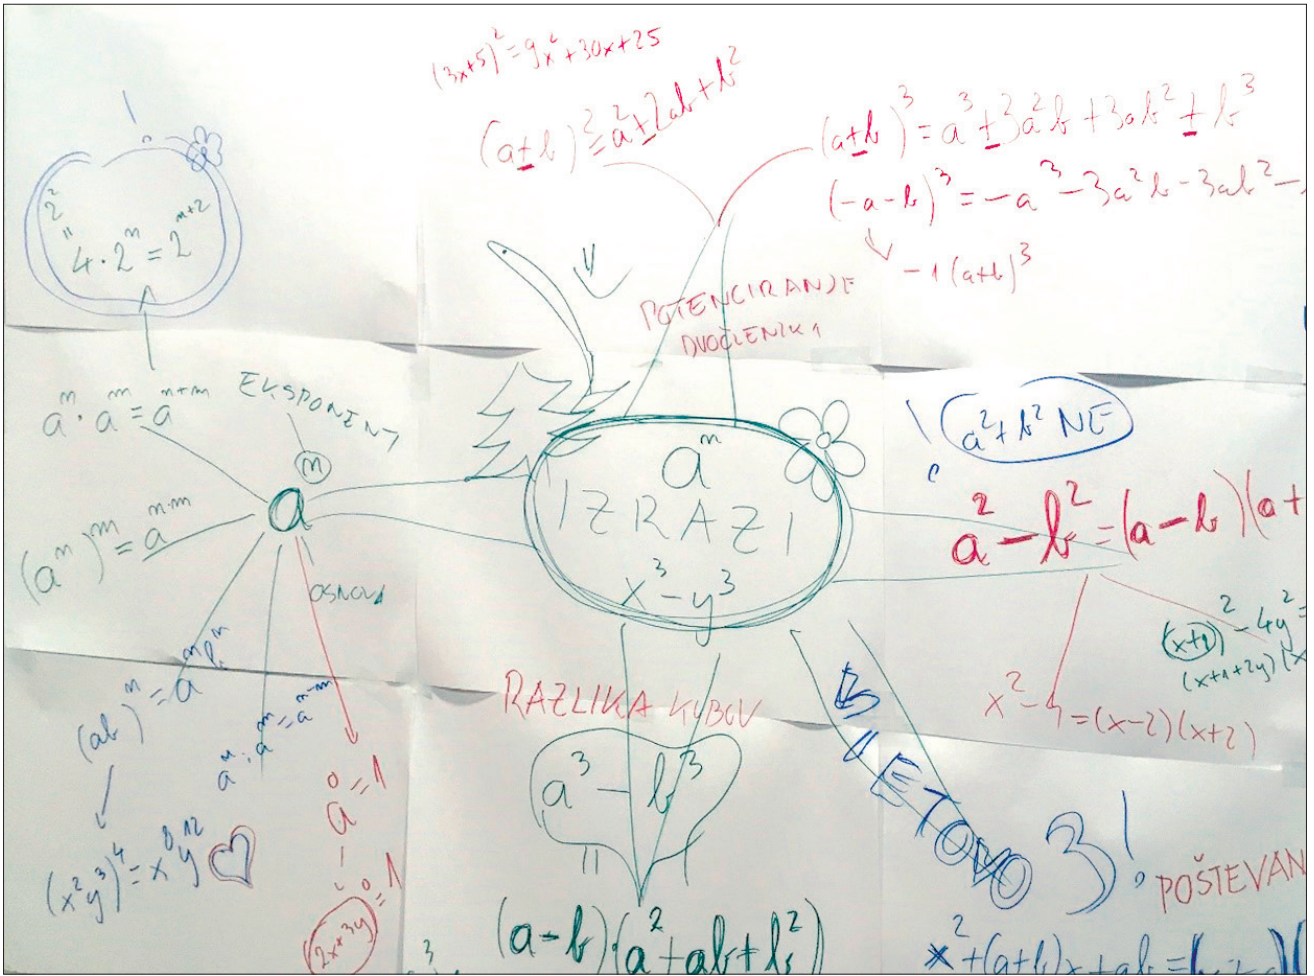 (3x+5)² = 9x² + 30x + 25
(a±b)² = a² ± 2ab + b²
(a±b)³ = a³ ± 3a²b + 3ab² ± b³
(-a-b)³ = -a³ - 3a²b - 3ab² -
-1(a+b)³
POTENCIRANJE
DVOČLENIKA
!
2²
"
4·2ⁿ = 2ⁿ⁺²
aⁿ·aᵐ = aⁿ⁺ᵐ
EKSPONENT
n
a
(aⁿ)ᵐ = aⁿ·ᵐ
OSNOVA
(ab)ⁿ = aⁿbⁿ
aⁿ:aᵐ = aⁿ⁻ᵐ
a⁰ = 1
(x²y³)⁴ = x⁸y¹²
(2x+3y)⁰ = 1
aⁿ
IZRAZI
x³-y³
! a²+b² NE
a² - b² = (a-b)(a+
(x+1)² - 4y² =
(x+1+2y)(x
x² - 4 = (x-2)(x+2)
RAZLIKA KUBOV
a³ - b³
=
(a-b)·(a²+ab+b²)
3
VIETOVO 3!
POŠTEVAN
x²+(a+b)x+ab=(